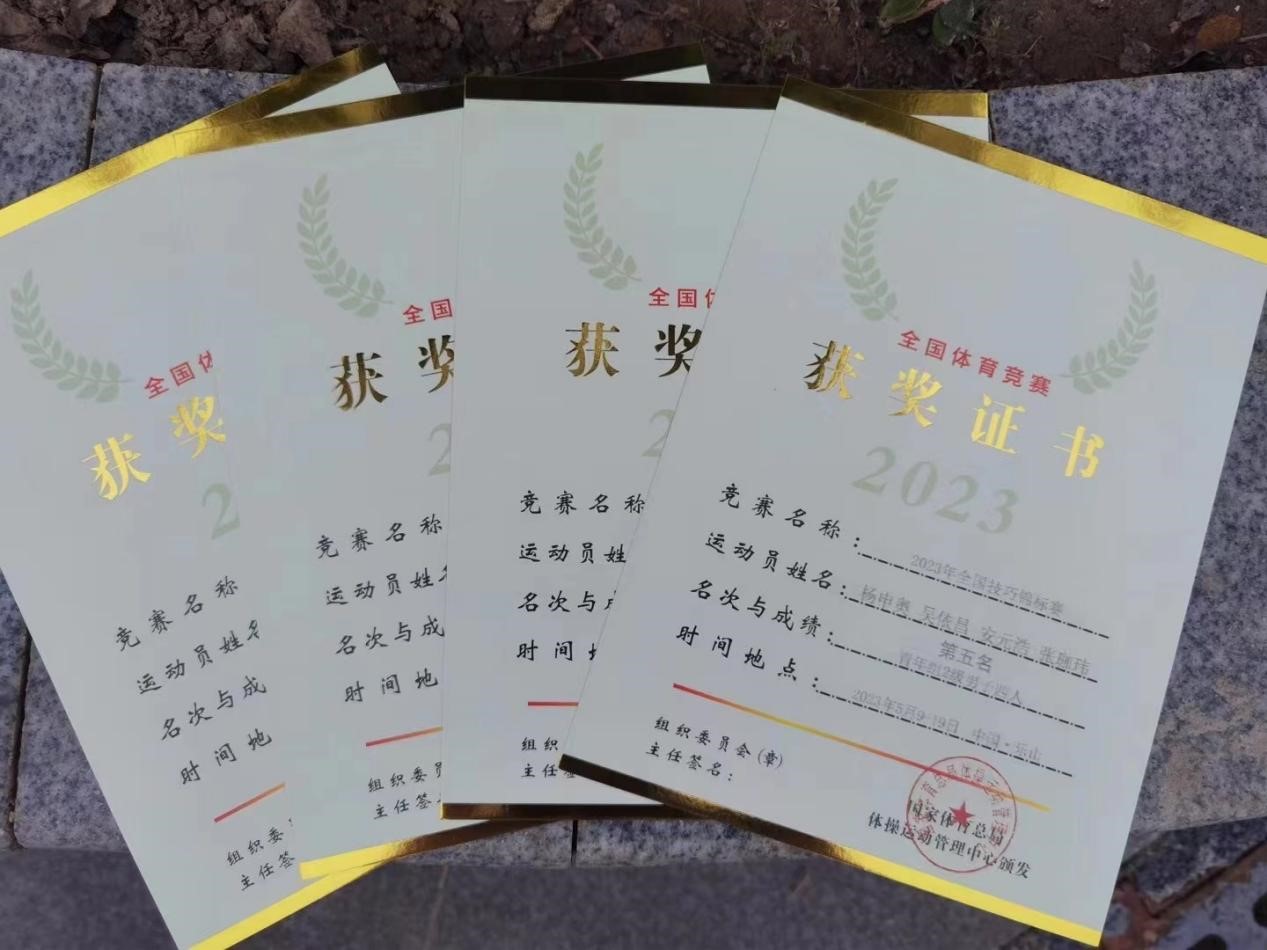 全国体
获奖
2
竞赛名称
运动员姓名
名次与成
时间地
组织委
主任签
全国
获奖
2
竞赛名称
运动员姓名
名次与成
时间地
组织委员
主任签
全国体
获奖
2
竞赛名称
运动员姓
名次与成
时间
组织
主任
全国体育竞赛
获奖证书
2023
竞赛名称：2023年全国技巧锦标赛
运动员姓名：杨申奥 吴依昌 安元浩 张栩玮
名次与成绩：第五名
青年组2级男子四人
时间地点：2023年5月9-19日 中国·乐山
组织委员会(章)
主任签名：
国家体育总局
体操运动管理中心颁发